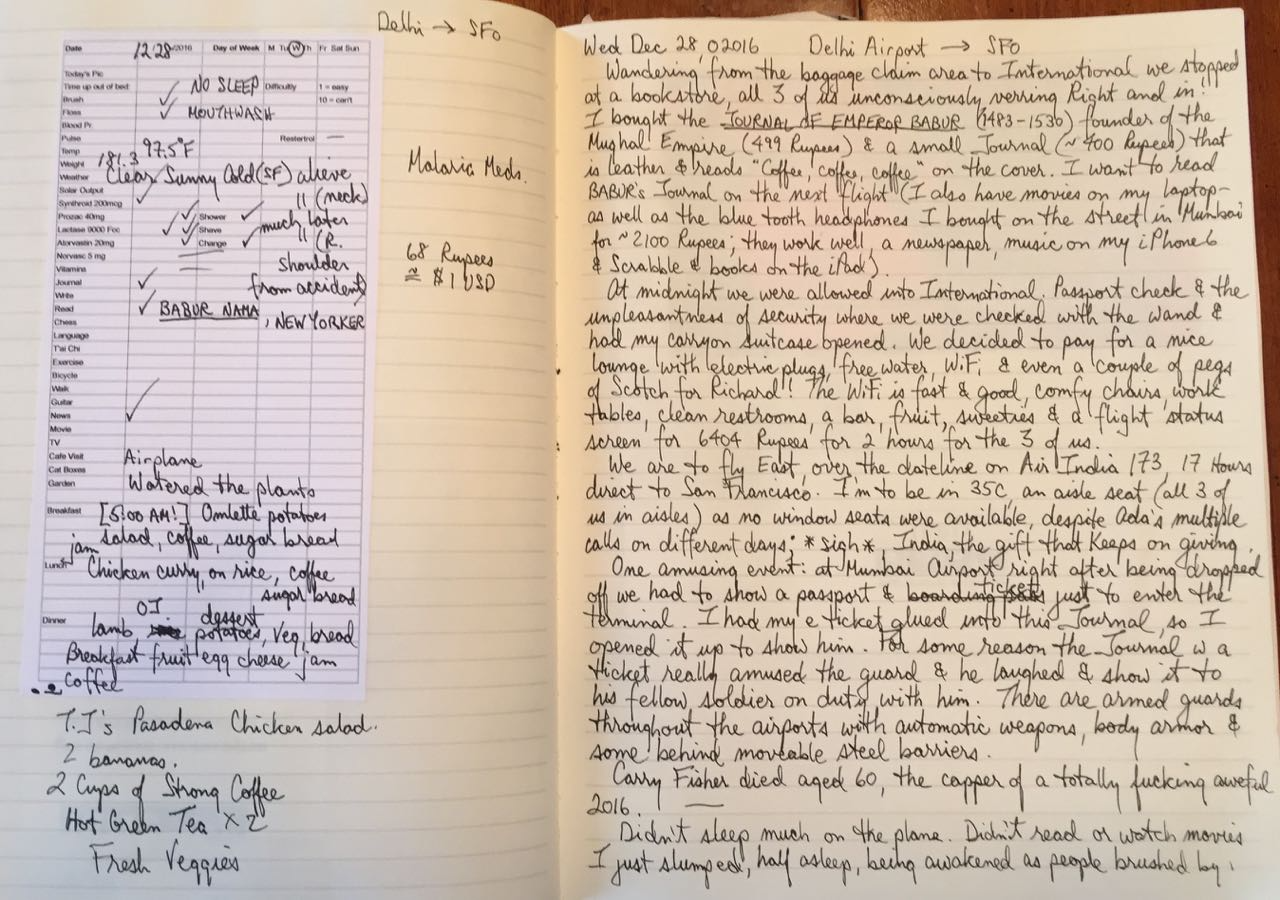 Delhi → SFO
Date 12/28/2016 Day of Week M Tu W Th Fr Sat Sun
Today's Pic
Time up out of bed: NO SLEEP Difficulty 1 = easy
Brush ✓ 10 = can't
Floss ✓ MOUTHWASH
Blood Pr.
Pulse Restertrol —
Temp 97.5°F
Weight 181.3
Weather Clear Sunny Cold (SF)
Solar Output
Synthroid 200mcg ✓
Prozac 40mg ✓✓ Shower ✓
Lactase 9000 Fcc ✓✓ Shave
Atorvastin 20mg ✓✓ Change ✓
Norvasc 5 mg —
Vitamins —
alieve
" (neck)
much later
" (R.
shoulder
from accident)
Journal ✓
Write
Read ✓ BABUR NAMA, NEW YORKER
Chess
Language
T'ai Chi
Exercise
Bicycle
Walk
Guitar
News ✓
Movie
TV
Cafe Visit Airplane
Cat Boxes
Garden Watered the plants
Breakfast [5:00 AM!] Omlette potatoes
salad, coffee, sugar bread
jam
Lunch Chicken curry, on rice, coffee
" sugar bread
OJ dessert
Dinner lamb potatoes, veg, bread
Breakfast fruit egg cheese jam
coffee
T.J's Pasadena Chicken salad.
2 bananas.
2 Cups of Strong Coffee
Hot Green Tea x 2
Fresh Veggies
Malaria Meds.
68 Rupees
≈ $1 USD
Wed Dec 28, 02016 Delhi Airport → SFO
Wandering from the baggage claim area to International we stopped
at a bookstore, all 3 of us unconsciously verring Right and in!
I bought the JOURNAL OF EMPEROR BABUR (1483-1530) founder of the
Mughal Empire (499 Rupees) & a small Journal (~400 Rupees) that
is leather & reads "Coffee, coffee, coffee" on the cover. I want to read
BABUR's Journal on the next flight (I also have movies on my laptop-
as well as the blue tooth headphones I bought on the street in Mumbai
for ~2100 Rupees; they work well, a newspaper, music on my iPhone6
& Scrabble & books on the iPad).
At midnight we were allowed into International. Passport check & the
unpleasantness of security where we were checked with the wand &
had my carryon suitcase opened. We decided to pay for a nice
lounge with electric plugs, free water, WiFi & even a couple of pegs
of Scotch for Richard! The WiFi is fast & good, comfy chairs, work
tables, clean restrooms, a bar, fruit, sweeties & a flight status
screen for 6404 Rupees for 2 hours for the 3 of us.
We are to fly East, over the dateline on Air India 173, 17 Hours
direct to San Francisco. I'm to be in 35C, an aisle seat (all 3 of
us in aisles) as no window seats were available, despite Ada's multiple
calls on different days; *sigh*, India, the gift that keeps on giving.
One amusing event: at Mumbai Airport right after being dropped
off we had to show a passport & boarding pass ticket just to enter the
terminal. I had my e ticket glued into this Journal, so I
opened it up to show him. For some reason the Journal w a
ticket really amused the guard & he laughed & show it to
his fellow soldier on duty with him. There are armed guards
throughout the airports with automatic weapons, body armor &
some behind moveable steel barriers.
Carry Fisher died aged 60, the capper of a totally fucking aweful
2016.
Didn't sleep much on the plane. Didn't read or watch movies
I just slumped, half asleep, being awakened as people brushed by.